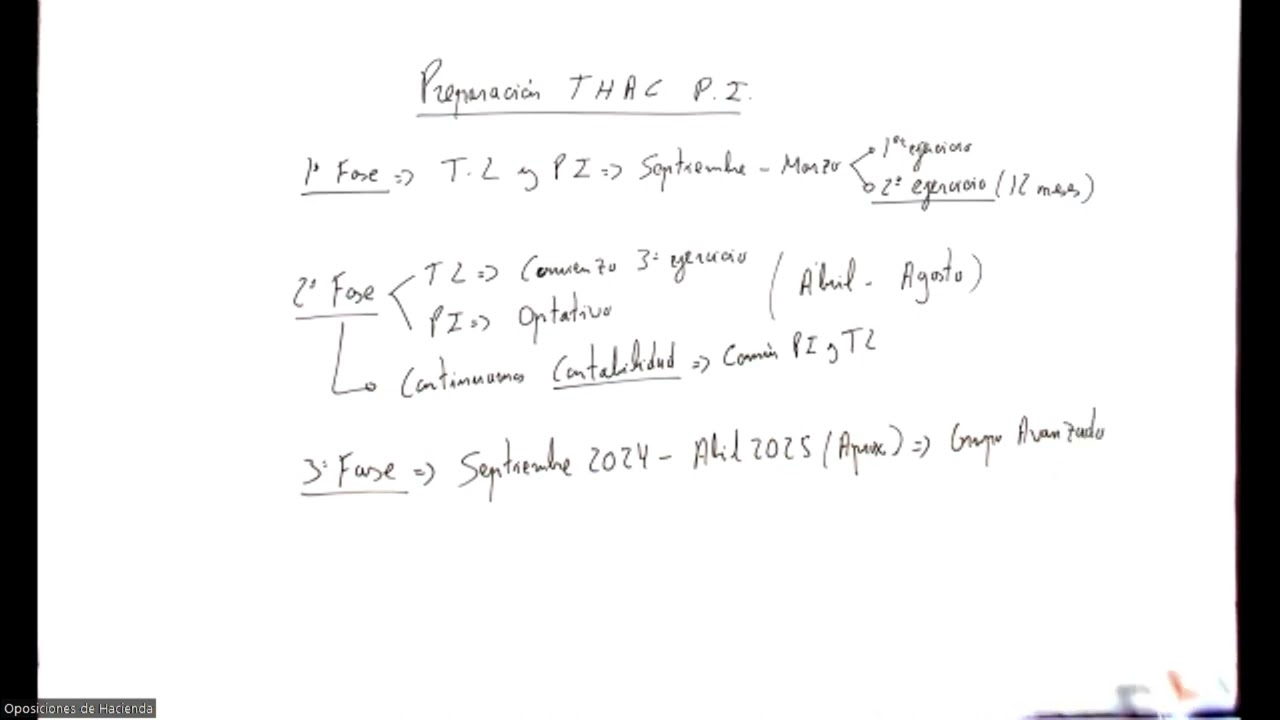 Preparación THAC P.I.
1ª Fase => T.L y PI => Septiembre - Marzo
1er ejercicio
2º ejercicio (12 meses)
2ª Fase
TL => Comienzo 3º ejercicio (Abril - Agosto)
PI => Optativo
Continuamos Contabilidad => Común PI y TL
3ª Fase => Septiembre 2024 - Abril 2025 (Aprox) => Grupo Avanzado
Oposiciones de Hacienda